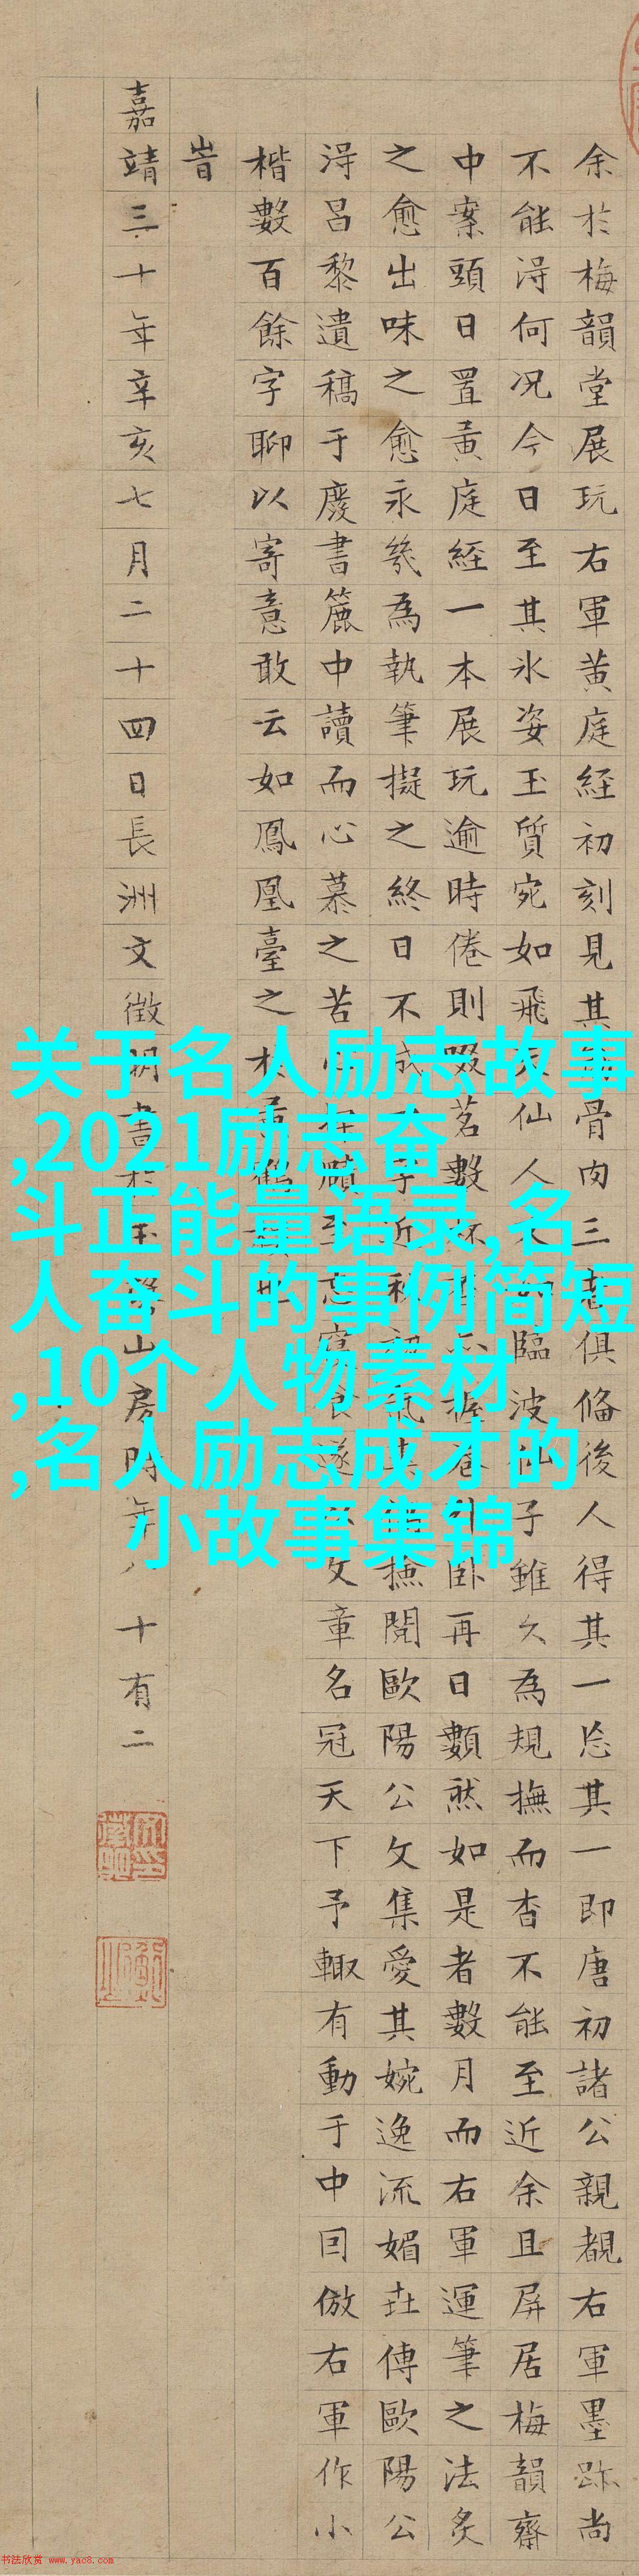 余於梅韻堂展玩右軍黄庭経初刻見其骨肉三者俱俻後人得其一忘其一即唐初諸公親覩右軍墨跡尚
不能淂何况今日至其氷姿玉質宛如飛仙人臨波仙子雖久為規撫而杳不能至近余且屏居梅韻齋
中案頭日置黄庭経一本展玩逾時倦則啜茗數杯卧再日數然如是者數月而右軍運筆之法炙
之愈出味之愈永幾為執筆擬之終日不成字近秋初氣撿閱歐陽公文集愛其婉逸流媚傳歐陽公
淂昌黎遺稿于廢書簏中讀而心慕之苦心賾至忘寢食遂文章名冠天下予輙有動于中因倣右軍作小
楷數百餘字聊以寄意敢云如鳳凰臺之於黄鶴也
旹
嘉靖三十年辛亥七月二十四日長洲文徴明書於玉山房時年八十有二
关于名人励志故事
,2021励志奋
斗正能量语录,名
人奋斗的事例简短
,10个人物素材
,名人励志成才的
小故事集锦
书法欣赏 www.yac8.com